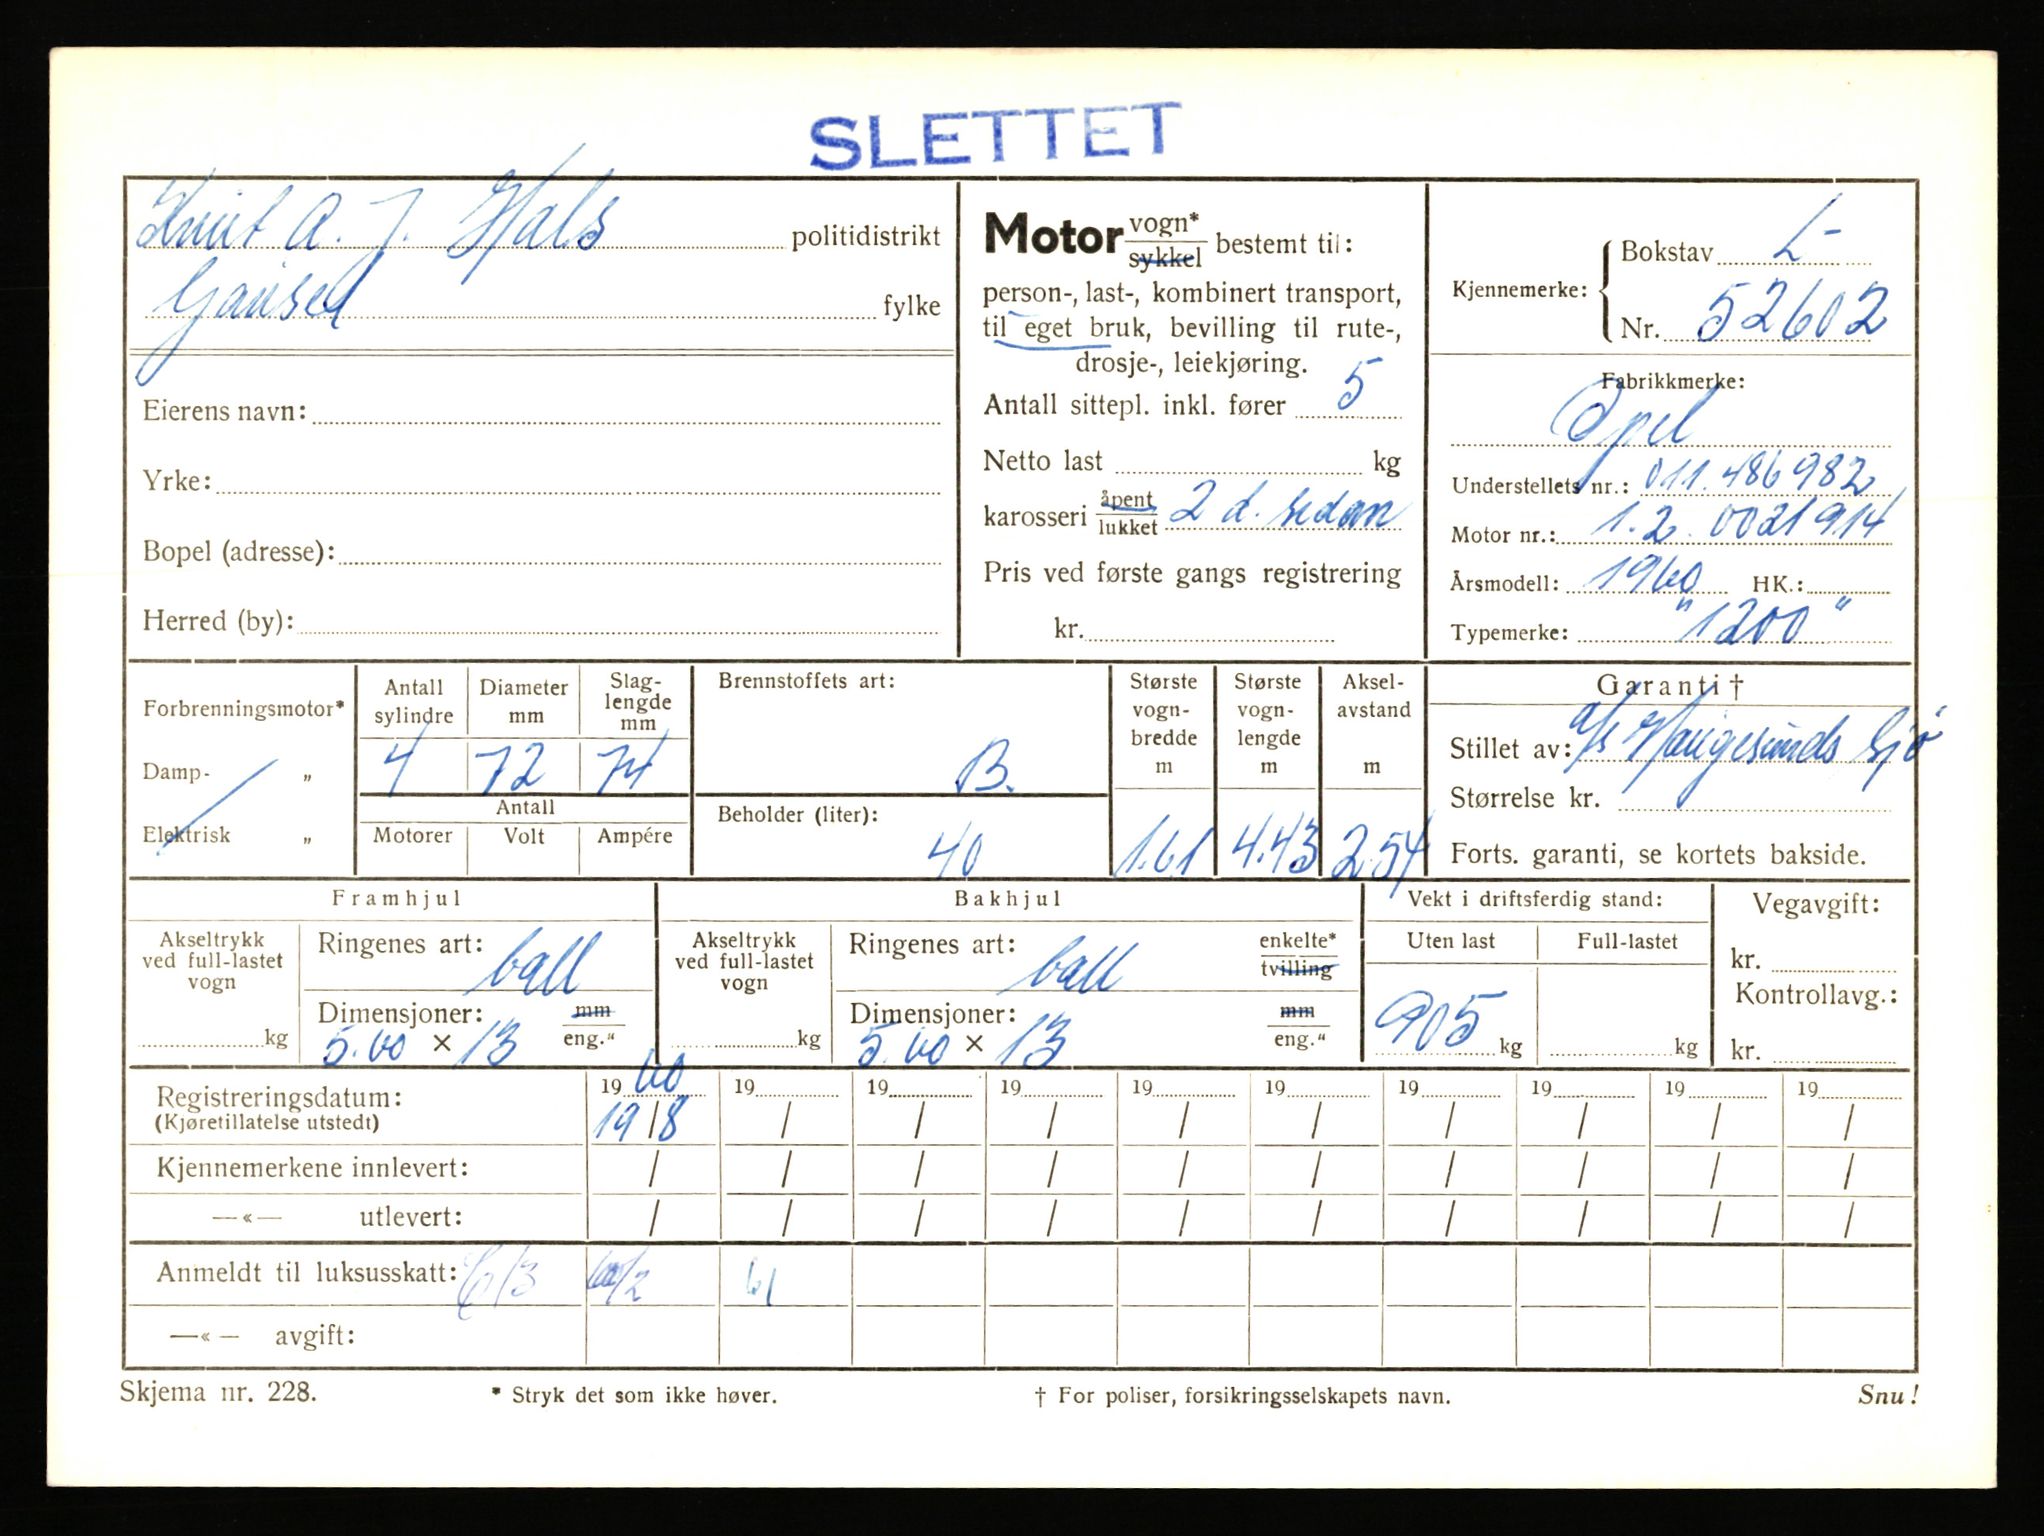 SLETTET
Knut A. J. Hals politidistrikt
Gausel fylke
Eierens navn:
Yrke:
Bopel (adresse):
Herred (by):
Motor vogn* sykkel bestemt til:
person-, last-, kombinert transport,
til eget bruk, bevilling til rute-,
drosje-, leiekjøring.
Antall sittepl. inkl. fører 5
Netto last kg
karosseri åpent lukket 2 d. sedan
Pris ved første gangs registrering
kr.
Kjennemerke: Bokstav L-
Nr. 52602
Fabrikkmerke:
Opel
Understellets nr.: 011.486982
Motor nr.: 1.2. 0021914
Årsmodell: 1960 HK.:
Typemerke: "1200"
Forbrenningsmotor*
Damp- „
Elektrisk „
Antall sylindre Diameter mm Slag-lengde mm
4 72 74
Antall
Motorer Volt Ampére
Brennstoffets art:
B.
Beholder (liter):
40
Største vogn-bredde m
1.61
Største vogn-lengde m
4.43
Aksel-avstand m
2.54
Garanti †
Stillet av: a/s Haugesunds Sjø
Størrelse kr.
Forts. garanti, se kortets bakside.
Framhjul
Akseltrykk ved full-lastet vogn
kg
Ringenes art: ball
Dimensjoner: mm
5.60 × 13 eng."
Bakhjul
Akseltrykk ved full-lastet vogn
kg
Ringenes art: ball enkelte* tvilling
Dimensjoner: mm
5.60 × 13 eng."
Vekt i driftsferdig stand:
Uten last Full-lastet
905 kg kg
Vegavgift:
kr.
Kontrollavg.:
kr.
Registreringsdatum: 19 60 19 19 19 19 19 19 19 19 19
(Kjøretillatelse utstedt) 19/8 / / / / / / / / /
Kjennemerkene innlevert: / / / / / / / / / /
—«— utlevert: / / / / / / / / / /
Anmeldt til luksusskatt: 61
—«— avgift:
Skjema nr. 228. * Stryk det som ikke høver. † For poliser, forsikringsselskapets navn. Snu!